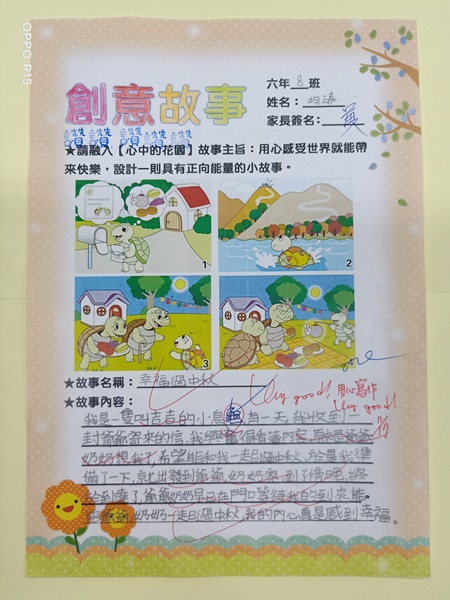 OPPO R15
創意故事
六年8班
姓名：
家長簽名：
讚讚讚讚讚讚
★請融入【心中的花園】故事主旨：用心感受世界就能帶
來快樂，設計一則具有正向能量的小故事。
1
2
3
4
★故事名稱：幸福過中秋
Very good!
用心寫作
★故事內容：
Very good!
我是一隻叫吉吉的小烏龜，有一天，我收到一
封爺爺寄來的信，我打開信看內容，原來是爺爺
奶奶想我了，希望能和我一起過中秋，於是我準
備了一下，就出發到爺爺、奶奶家，到了傍晚，終
於到達了，爺爺奶奶早已在門口等待我的到來，能
和爺爺、奶奶一起過中秋，我的內心真是感到幸福。